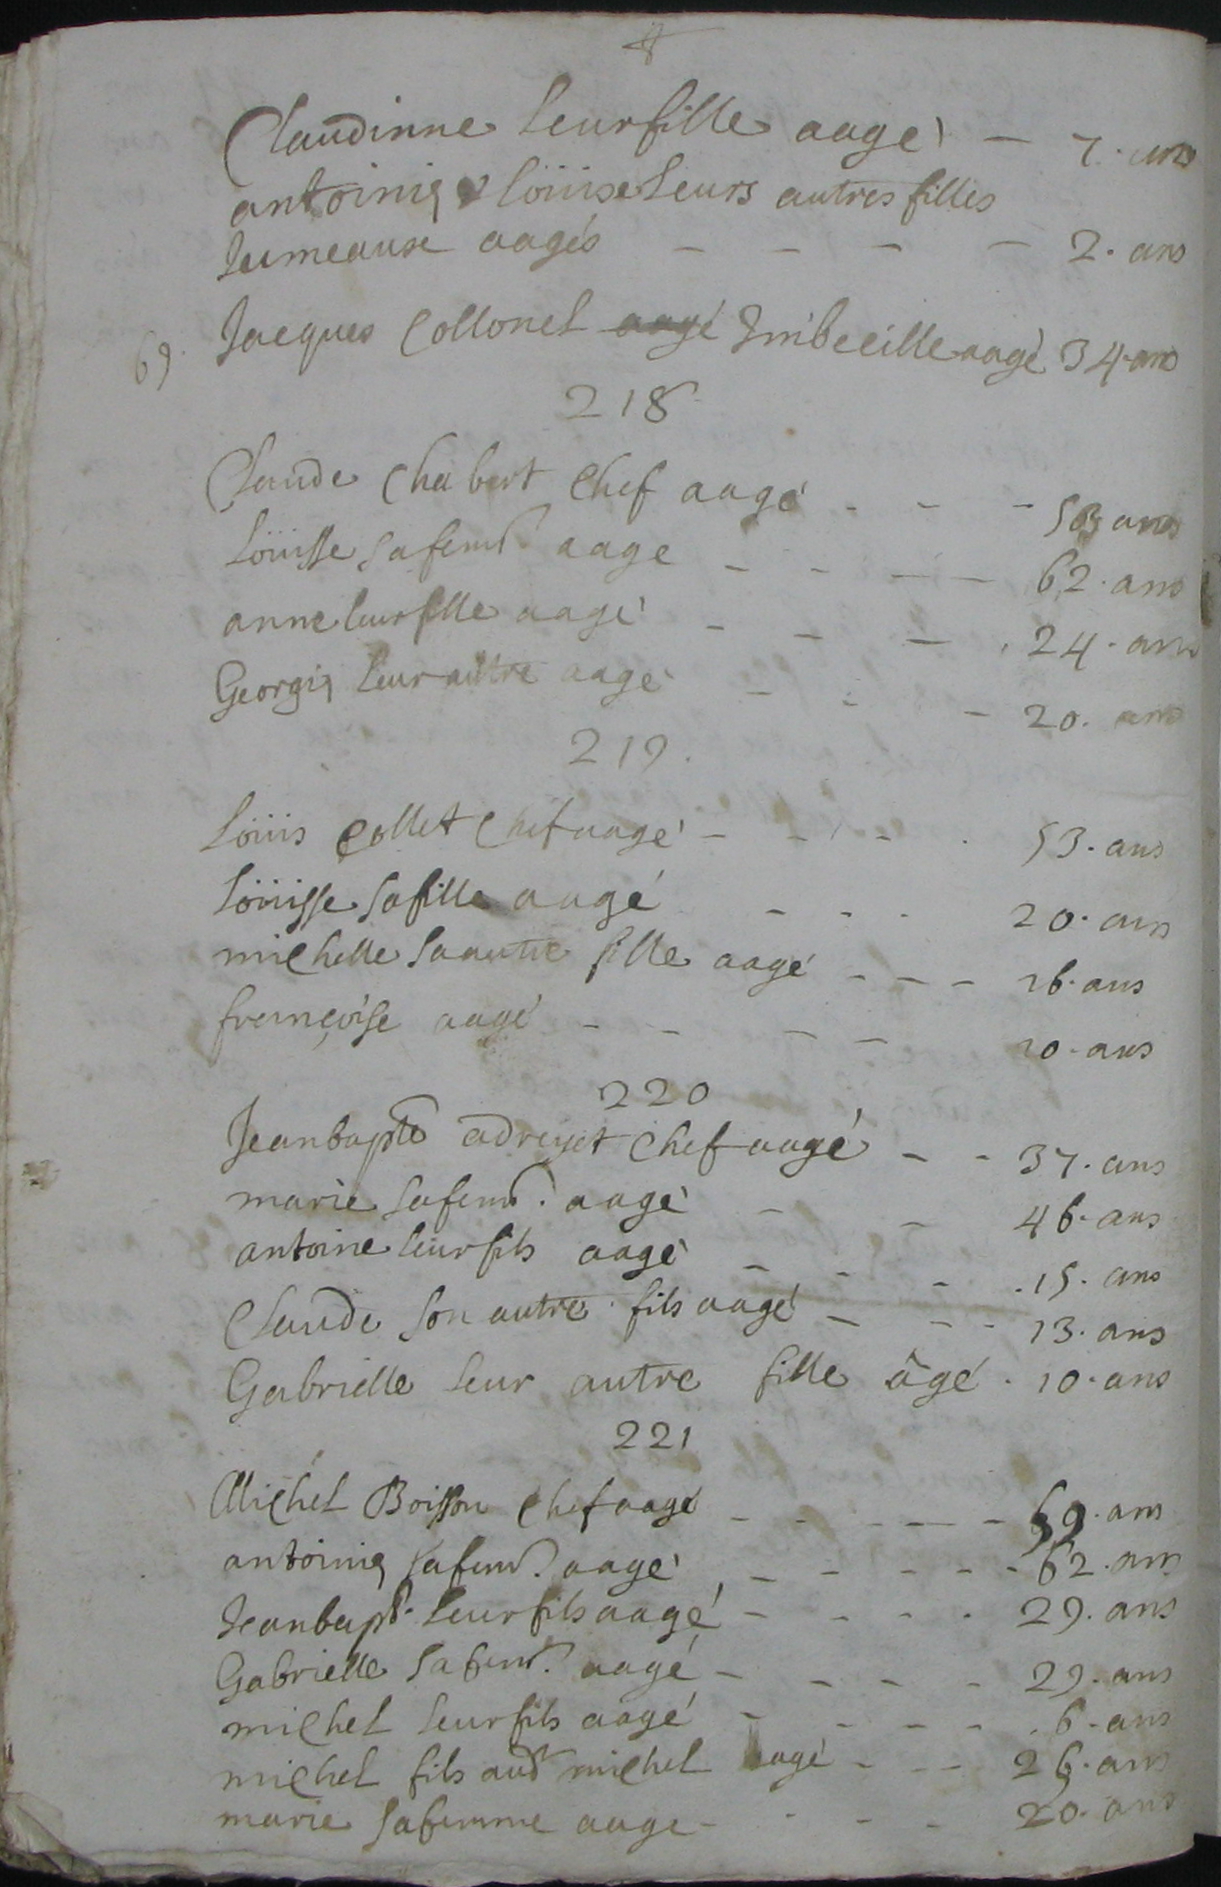 Claudinne leur fille aagé - 7. ans
antoinia & loüise leurs autres filles
Jumeause aagés - - - - 2. ans
69. Jacques Collonel aagé Jmbecille aagé 34 ans
218
Claude Chabert Chef aagé - - - 53 ans
Loüisse sa fem̃. aage - - - - 62. ans
anne leur fille aagé - - - . 24. ans
Georgia leur autre aagé - - - 20. ans
219.
Loüis Collet Chef aagé - - - . 53. ans
Loüisse sa fille aagé - - - 20. ans
michelle sa autre fille aagé - - - 16. ans
françoise aagé - - - - 10. ans
220
Jean bapte adreyet Chef aagé - - 37. ans
marie sa fem̃. aagé - - 46. ans
antoine leur fils aagé - - - . 15. ans
Claude son autre fils aagé - - - 13. ans
Gabrielle leur autre fille âgé . 10. ans
221
Michel Boisson Chef aagé - - - - - 59. ans
antoinia sa fem̃. aagé - - - - - 62. ans
Jean bapt. leur fils aagé - - - . 29. ans
Gabrielle sa fem̃. aagé - - - - 29. ans
michel leur fils aagé - - - - . 6. ans
michel fils aud. michel aagé - - - 26. ans
marie sa femme aage - - - - 20. ans